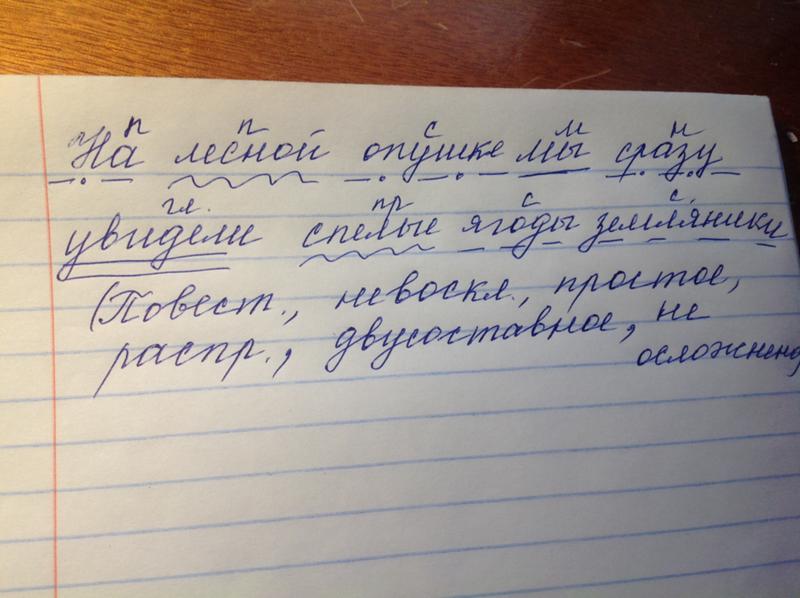 п п с м н
На лесной опушке мы сразу
гл. пр с с
увидели спелые ягоды земляники
(Повест., невоскл., простое,
распр., двусоставное, не
осложнено